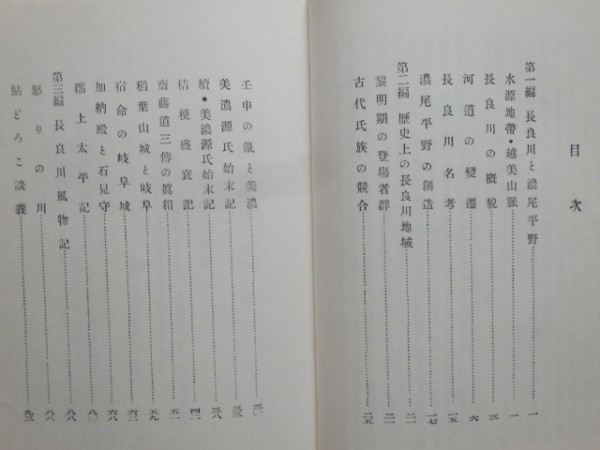 目次
第一編 長良川と濃尾平野……一
水源地帶・越美山脈……一
長良川の概貌……三
河道の變遷……六
長良川名考……一五
濃尾平野の創造……一七
第二編 歷史上の長良川地域……二一
黎明期の登場者群……二一
古代氏族の競合……二五
壬申の亂と美濃……三〇
美濃源氏始末記……三三
續・美濃源氏始末記……三八
桔梗盛衰記……四二
齋藤道三傳の眞相……五一
稻葉山城と岐阜……五九
宿命の岐阜城……六二
加納殿と石見守……六八
郡上太平記……八〇
第三編 長良川風物記……八八
怒りの川……八八
鮎どろこ談義……九三